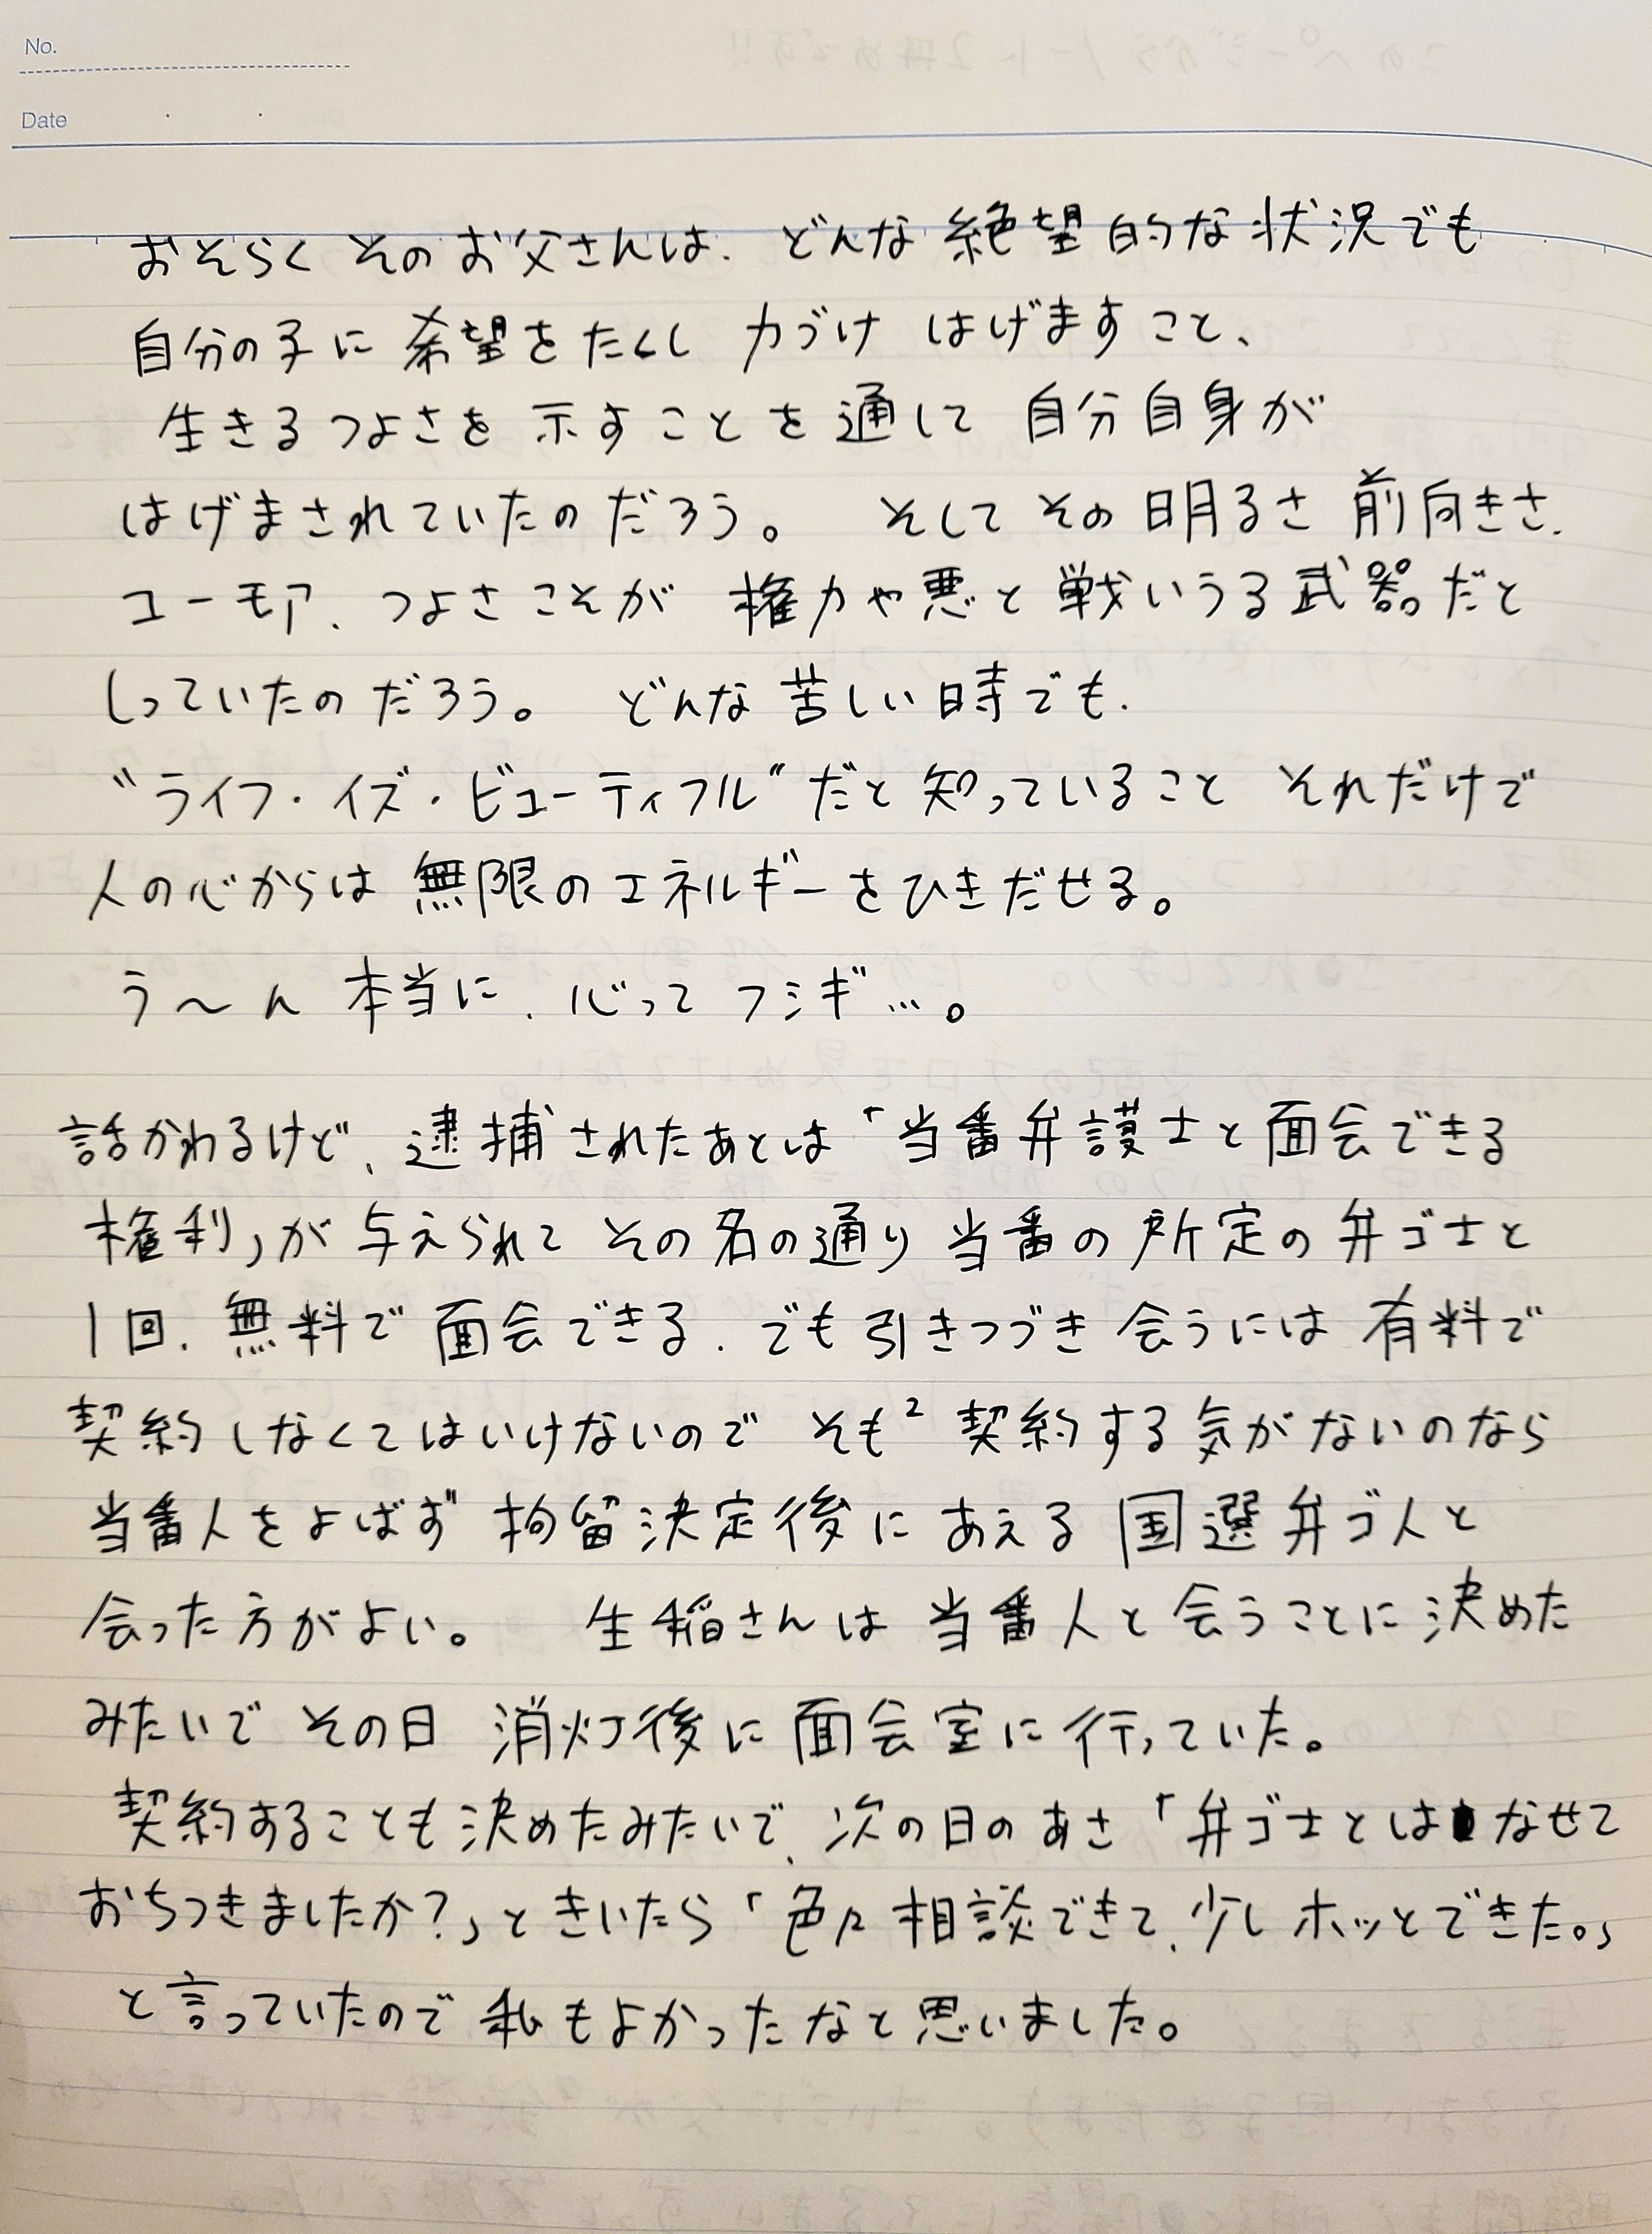 No.
Date
おそらく そのお父さんは、どんな絶望的な状況でも
自分の子に希望をたくし 力づけ はげますこと、
生きるつよさを示すことを通して 自分自身が
はげまされていたのだろう。 そしてその明るさ 前向きさ、
ユーモア、つよさこそが 権力や悪と戦いうる武器だと
しっていたのだろう。 どんな苦しい時でも、
“ライフ・イズ・ビューティフル”だと知っていること それだけで
人の心からは無限のエネルギーをひきだせる。
う〜ん 本当に、心ってフシギ…。
話かわるけど、逮捕されたあとは「当番弁護士と面会できる
権利」が与えられて その名の通り当番の所定の弁ゴ士と
1回、無料で面会できる、でも引きつづき会うには有料で
契約しなくてはいけないので そも² 契約する気がないのなら
当番人をよばず 拘留決定後にあえる国選弁ゴ人と
会った方がよい。 生稲さんは当番人と会うことに決めた
みたいで その日 消灯後に面会室に行っていた。
契約することも決めたみたいで、次の日のあさ「弁ゴ士とはなせて
おちつきましたか?」ときいたら「色々相談できて、少しホッとできた。」
と言っていたので私もよかったなと思いました。